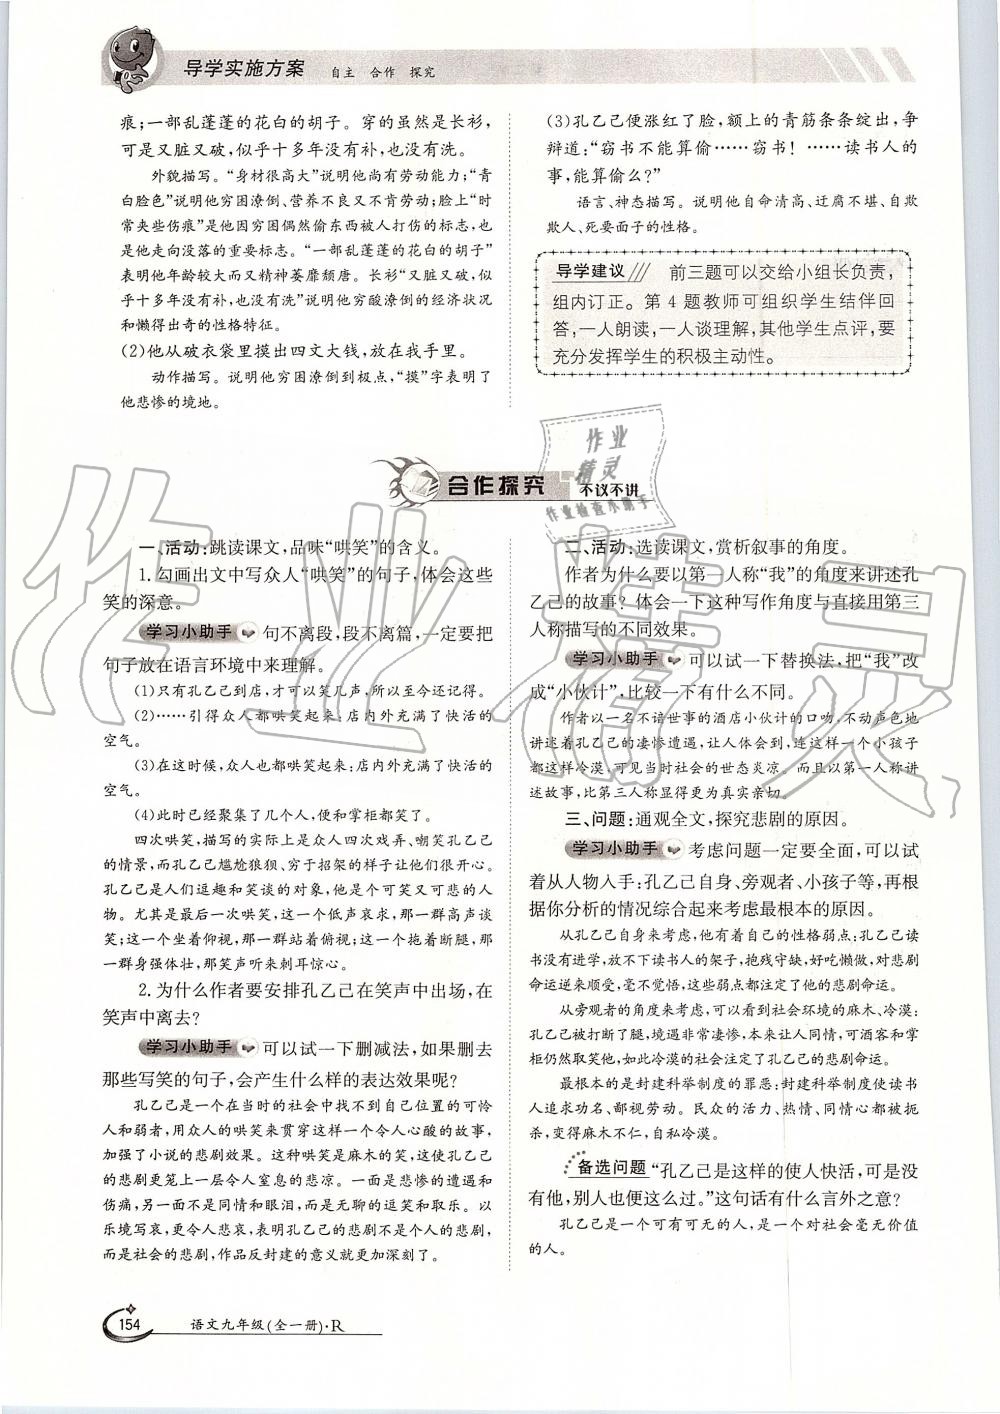 导学实施方案 自主 合作 探究
痕；一部乱蓬蓬的花白的胡子。穿的虽然是长衫，
可是又脏又破，似乎十多年没有补，也没有洗。
外貌描写。“身材很高大”说明他尚有劳动能力；“青
白脸色”说明他穷困潦倒、营养不良又不肯劳动；脸上“时
常夹些伤痕”是他因穷困偶然偷东西被人打伤的标志，也
是他走向没落的重要标志。“一部乱蓬蓬的花白的胡子”
表明他年龄较大而又精神萎靡颓唐。长衫“又脏又破，似
乎十多年没有补，也没有洗”说明他穷酸潦倒的经济状况
和懒得出奇的性格特征。
(2)他从破衣袋里摸出四文大钱，放在我手里。
动作描写。说明他穷困潦倒到极点，“摸”字表明了
他悲惨的境地。
(3)孔乙己便涨红了脸，额上的青筋条条绽出，争
辩道：“窃书不能算偷……窃书！……读书人的
事，能算偷么？”
语言、神态描写。说明他自命清高、迂腐不堪、自欺
欺人、死要面子的性格。
导学建议 前三题可以交给小组长负责，
组内订正。第4题教师可组织学生结伴回
答，一人朗读，一人谈理解，其他学生点评，要
充分发挥学生的积极主动性。
合作探究 不议不讲
一、活动：跳读课文，品味“哄笑”的含义。
1.勾画出文中写众人“哄笑”的句子，体会这些
笑的深意。
学习小助手 句不离段，段不离篇，一定要把
句子放在语言环境中来理解。
(1)只有孔乙己到店，才可以笑几声，所以至今还记得。
(2)……引得众人都哄笑起来：店内外充满了快活的
空气。
(3)在这时候，众人也都哄笑起来：店内外充满了快活的
空气。
(4)此时已经聚集了几个人，便和掌柜都笑了。
四次哄笑，描写的实际上是众人四次戏弄、嘲笑孔乙己
的情景，而孔乙己尴尬狼狈、穷于招架的样子让他们很开心。
孔乙己是人们逗趣和笑谈的对象，他是个可笑又可悲的人
物。尤其是最后一次哄笑，这一个低声哀求，那一群高声谈
笑；这一个坐着仰视，那一群站着俯视；这一个拖着断腿，那
一群身强体壮，那笑声听来刺耳惊心。
2.为什么作者要安排孔乙己在笑声中出场，在
笑声中离去？
学习小助手 可以试一下删减法，如果删去
那些写笑的句子，会产生什么样的表达效果呢？
孔乙己是一个在当时的社会中找不到自己位置的可怜
人和弱者，用众人的哄笑来贯穿这样一个令人心酸的故事，
加强了小说的悲剧效果。这种哄笑是麻木的笑，这使孔乙己
的悲剧更笼上一层令人窒息的悲凉。一面是悲惨的遭遇和
伤痛，另一面不是同情和眼泪，而是无聊的逗笑和取乐。以
乐境写哀，更令人悲哀，表明孔乙己的悲剧不是个人的悲剧，
而是社会的悲剧，作品反封建的意义就更加深刻了。
二、活动：选读课文，赏析叙事的角度。
作者为什么要以第一人称“我”的角度来讲述孔
乙己的故事？体会一下这种写作角度与直接用第三
人称描写的不同效果。
学习小助手 可以试一下替换法，把“我”改
成“小伙计”，比较一下有什么不同。
作者以一名不谙世事的酒店小伙计的口吻，不动声色地
讲述着孔乙己的凄惨遭遇，让人体会到，连这样一个小孩子
都这样冷漠，可见当时社会的世态炎凉。而且以第一人称讲
述故事，比第三人称显得更为真实亲切。
三、问题：通观全文，探究悲剧的原因。
学习小助手 考虑问题一定要全面，可以试
着从人物入手：孔乙己自身、旁观者、小孩子等，再根
据你分析的情况综合起来考虑最根本的原因。
从孔乙己自身来考虑，他有着自己的性格弱点：孔乙己读
书没有进学，却放不下读书人的架子，抱残守缺，好吃懒做，对悲剧
命运逆来顺受，毫不觉悟，这些弱点都注定了他的悲剧命运。
从旁观者的角度来考虑，可以看到社会环境的麻木、冷漠：
孔乙己被打断了腿，境遇非常凄惨，本来让人同情，可酒客和掌
柜仍然取笑他，如此冷漠的社会注定了孔乙己的悲剧命运。
最根本的是封建科举制度的罪恶：封建科举制度使读书
人追求功名、鄙视劳动。民众的活力、热情、同情心都被扼
杀，变得麻木不仁，自私冷漠。
备选问题 “孔乙己是这样的使人快活，可是没
有他，别人也便这么过。”这句话有什么言外之意？
孔乙己是一个可有可无的人，是一个对社会毫无价值
的人。
154 语文九年级(全一册)·R
作业精灵
作业
精灵
作业检查小助手